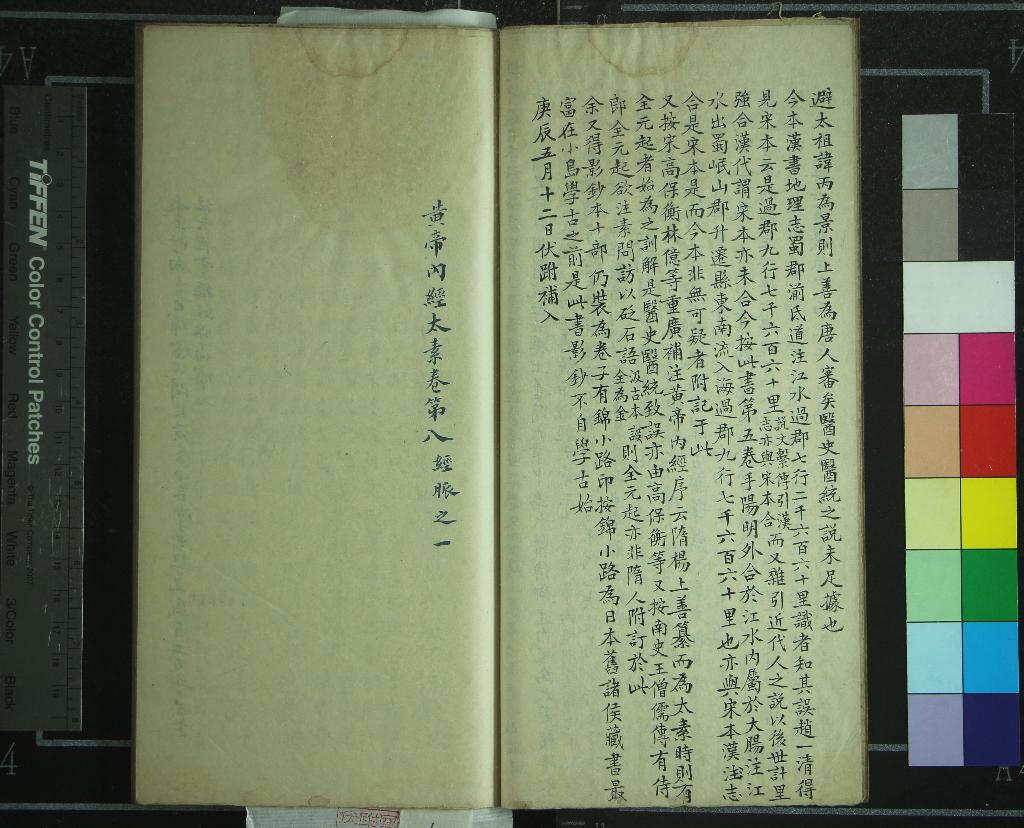 避太祖諱丙為景則上善為唐人審矣醫史醫統之説未足據也
今本漢書地理志蜀郡湔氐道注江水過郡七行二千六百六十里識者知其誤趙一清得
見宋本云是過郡九行七千六百六十里説文繫傳引漢志亦與宋本合而又雜引近代人之説以後世計里
強合漢代謂宋本亦未合今按此書第五卷手陽明外合於江水内屬於大腸注江
水出蜀岷山郡升遷縣東南流入海過郡九行七千六百六十里也亦與宋本漢志
合是宋本是而今本非無可疑者附記于此
又按宋高保衡林億等重廣補注黄帝内經序云隋楊上善纂而為太素時則有
全元起者始為之訓解是醫史醫統致誤亦由高保衡等又按南史王僧儒傳有侍
郎全元起欲注素問訪以砭石語汲古本全為金誤則全元起亦非隋人附訂於此
余又得影鈔本十部仍裝為卷子有錦小路印按錦小路為日本舊諸侯藏書最
富在小島學古之前是此書影鈔不自學古始
庚辰五月十二日伏跗補入
黄帝内經太素卷第八 經脈之一
TIFFEN Color Control Patches
Blue Cyan Green Yellow Red Magenta White 3/Color Black